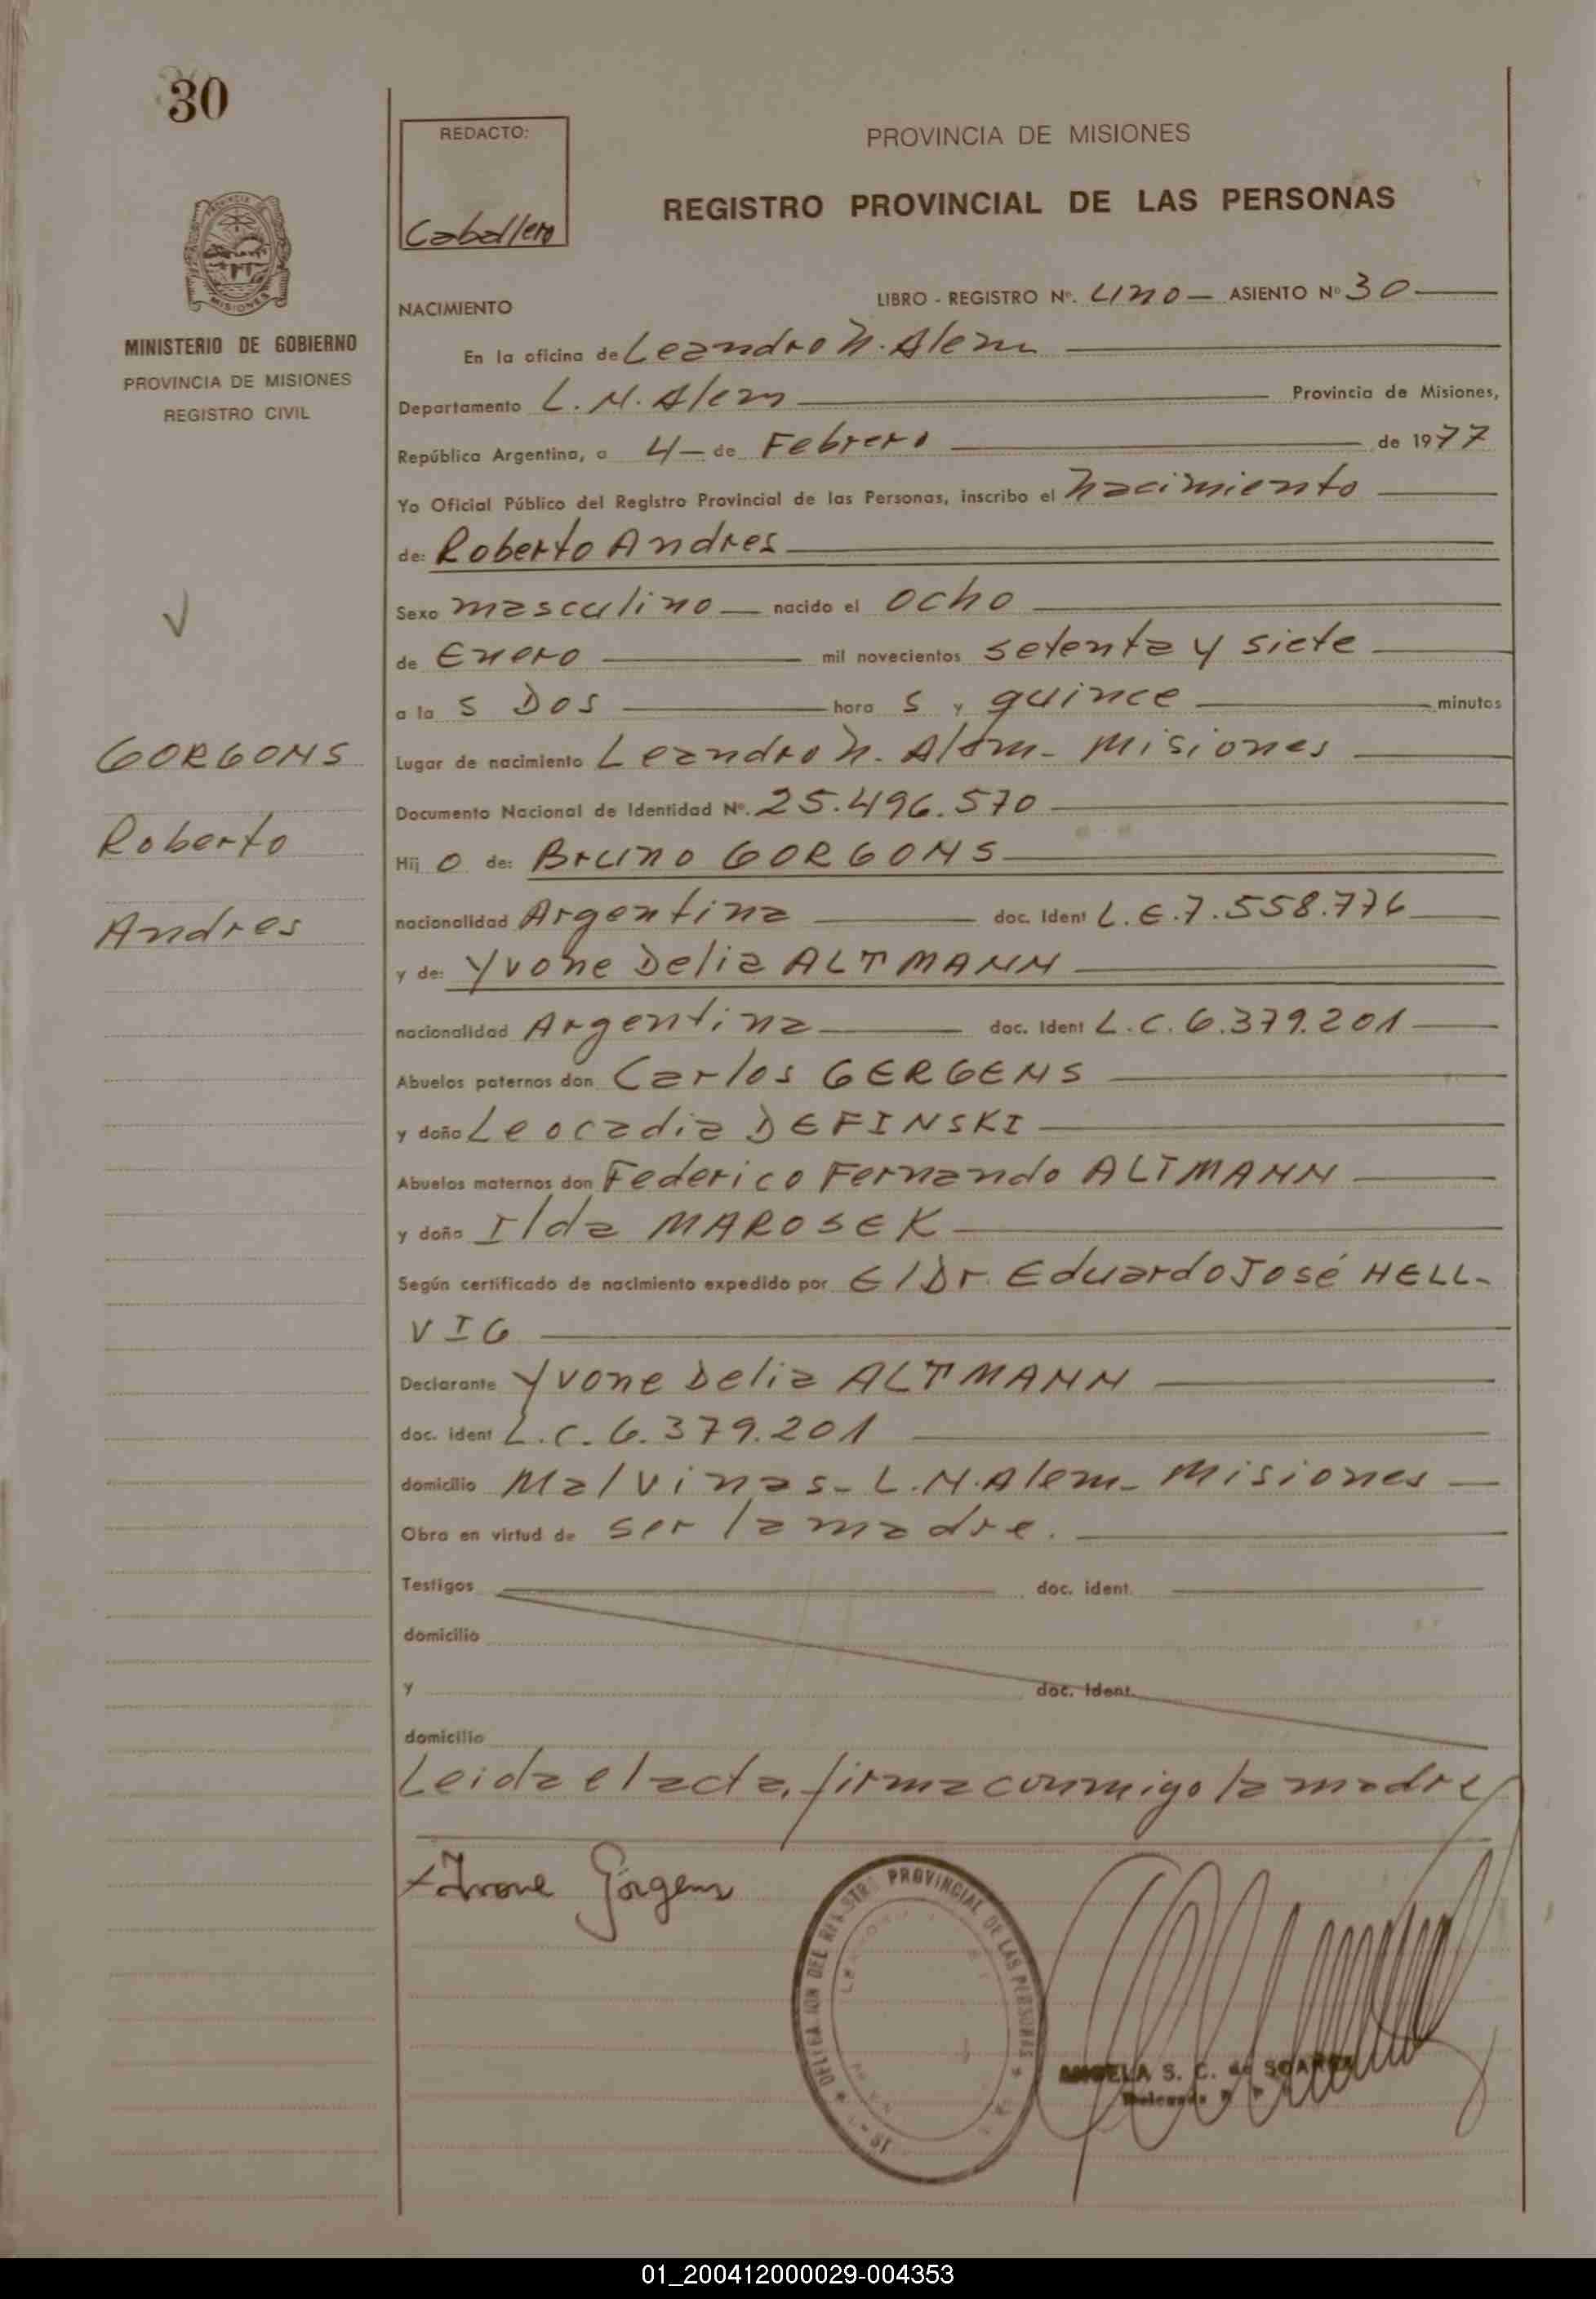 30
REDACTO:
Caballero
PROVINCIA DE MISIONES
REGISTRO PROVINCIAL DE LAS PERSONAS
MISIONES
MINISTERIO DE GOBIERNO
PROVINCIA DE MISIONES
REGISTRO CIVIL
NACIMIENTO
LIBRO - REGISTRO Nº. UNO — ASIENTO Nº 30
En la oficina de Leandro N. Alem
Departamento L. N. Alem Provincia de Misiones,
República Argentina, a 4 — de Febrero de 1977
Yo Oficial Público del Registro Provincial de las Personas, inscribo el nacimiento
de: Roberto Andres
Sexo masculino — nacido el ocho
de Enero mil novecientos setenta y siete
a la s Dos hora s y quince minutos
Lugar de nacimiento Leandro N. Alem - Misiones
Documento Nacional de Identidad Nº. 25.496.570
Hij o de: Bruno GORGONS
nacionalidad Argentina doc. Ident L.E. 7.558.776
y de: Yvone Delia ALTMANN
nacionalidad Argentina doc. Ident L.C. 6.379.201
Abuelos paternos don Carlos GERGENS
y doña Leocadia DEFINSKI
Abuelos maternos don Federico Fernando ALTMANN
y doña Ilda MAROSEK
Según certificado de nacimiento expedido por El Dr. Eduardo José HELL-
VIG
Declarante Yvone Delia ALTMANN
doc. ident L.C. 6.379.201
domicilio Malvinas - L.N. Alem - Misiones
Obra en virtud de ser la madre.
Testigos doc. ident.
domicilio
y doc. Ident.
domicilio
Leida el acta, firma conmigo la madre
GORGONS
Roberto
Andres
Yvone Görgens
DELEGACION DEL REGISTRO PROVINCIAL DE LAS PERSONAS
ANGELA S. C. de SOAREZ
01_200412000029-004353